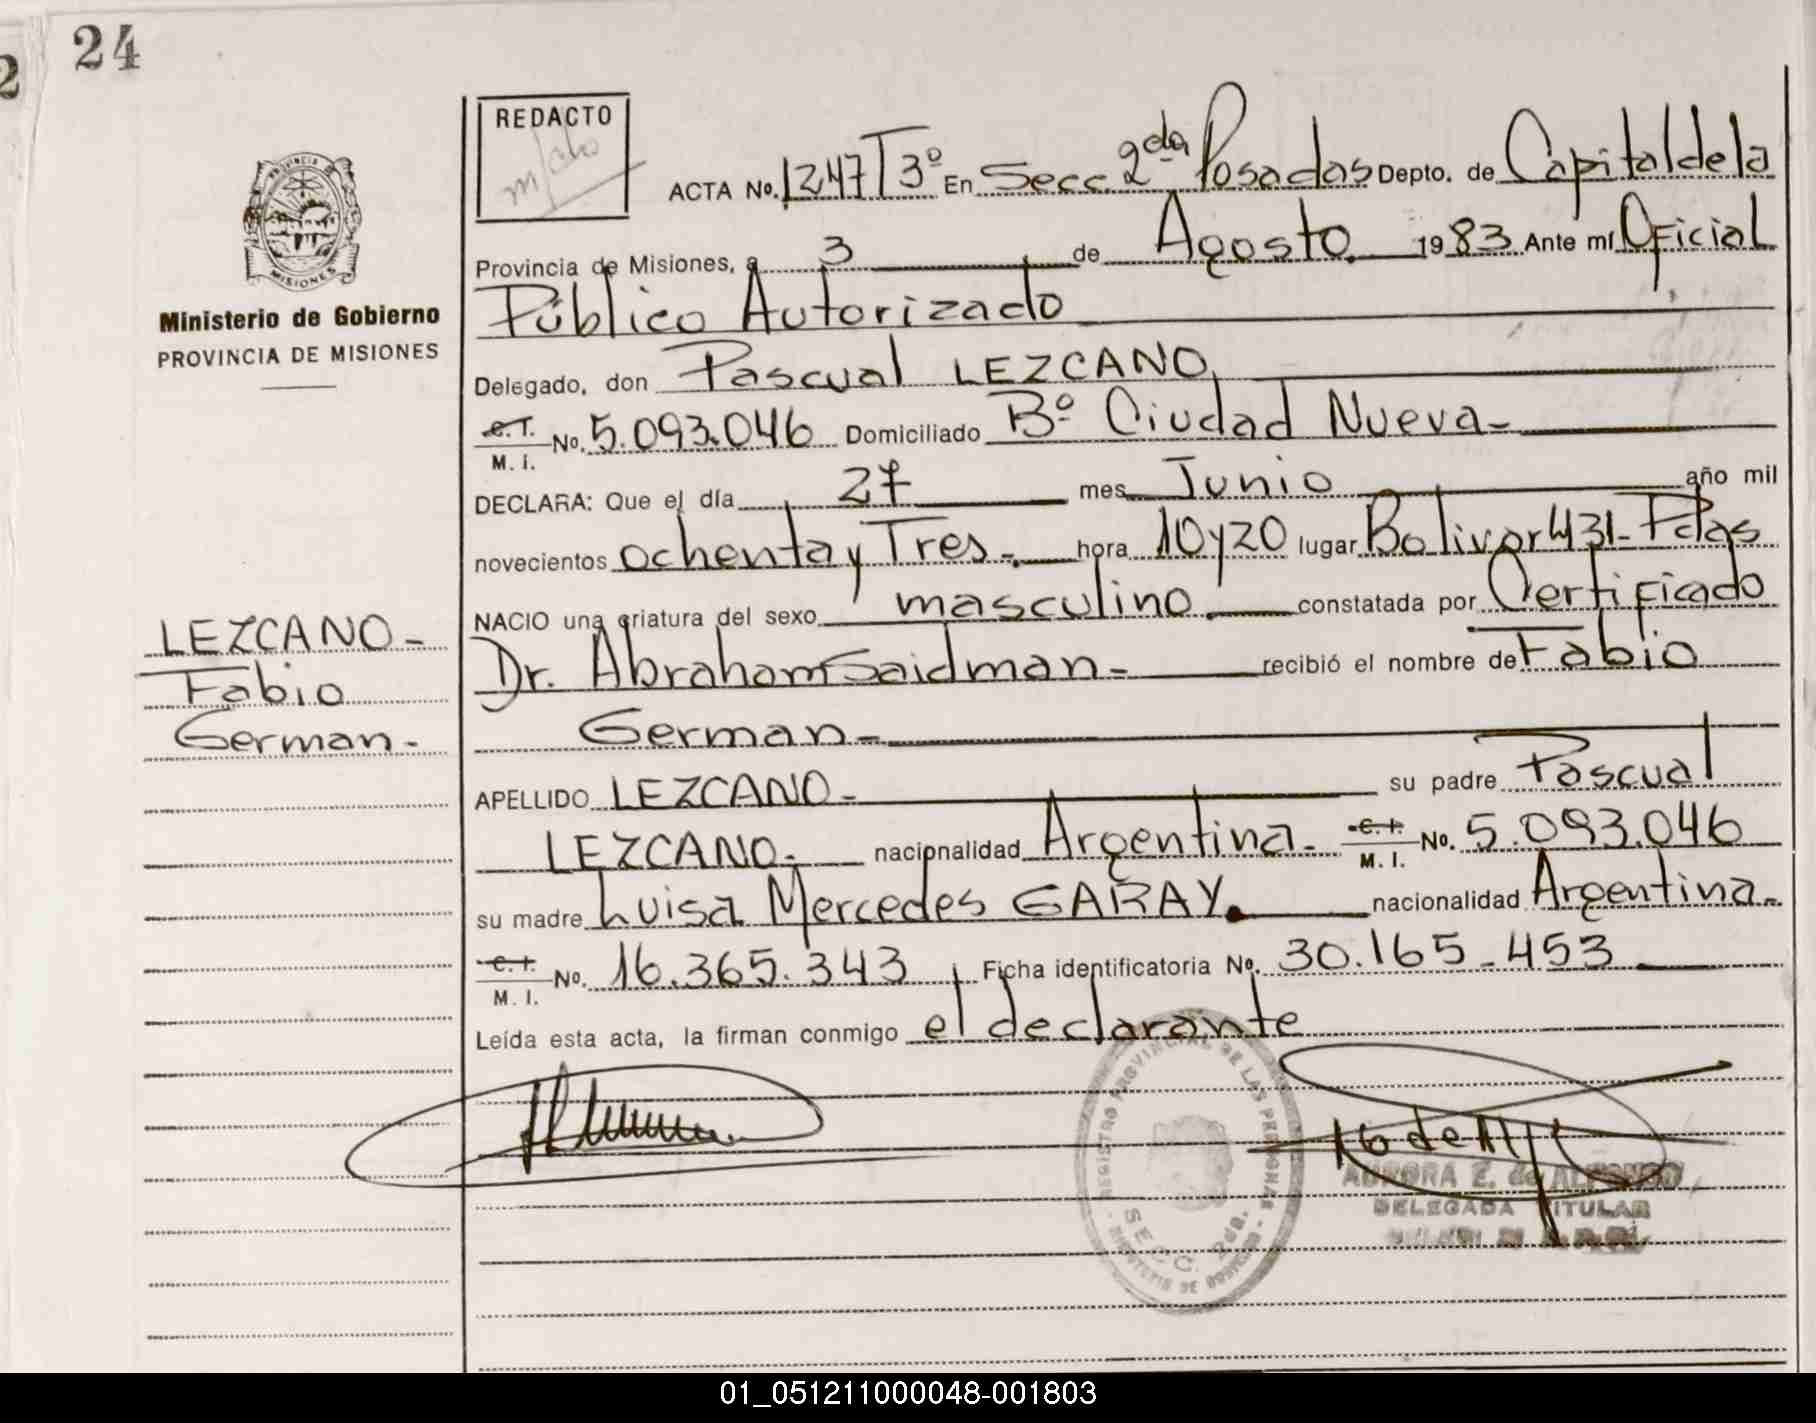 24
2
REDACTO
ACTA No. 1247 T 3º En Secc. 2da Posadas Depto. de Capital de la
PROVINCIA DE
MISIONES
Provincia de Misiones, a 3 de Agosto. 1983 Ante mí Oficial
Público Autorizado
Ministerio de Gobierno
PROVINCIA DE MISIONES
Delegado, don Pascual LEZCANO,
C.I. M. I. No. 5.093.046 Domiciliado Bº Ciudad Nueva-
DECLARA: Que el día 27 mes Junio año mil
novecientos ochenta y Tres.- hora 10 y 20 lugar Bolivar 431-Pdas
NACIO una criatura del sexo masculino. constatada por Certificado
LEZCANO-
Fabio
German-
Dr. Abraham Saidman- recibió el nombre de Fabio
German-
APELLIDO LEZCANO- su padre Pascual
LEZCANO- nacionalidad Argentina- C.I. M. I. No. 5.093.046
su madre Luisa Mercedes GARAY. nacionalidad Argentina.-
C.I. M. I. No. 16.365.343 Ficha identificatoria No. 30.165-453
Leída esta acta, la firman conmigo el declarante
REGISTRO PROVINCIAL DE LAS PERSONAS
SECC. 2da.
AURORA E. de ALFONSO
DELEGADA TITULAR
01_051211000048-001803